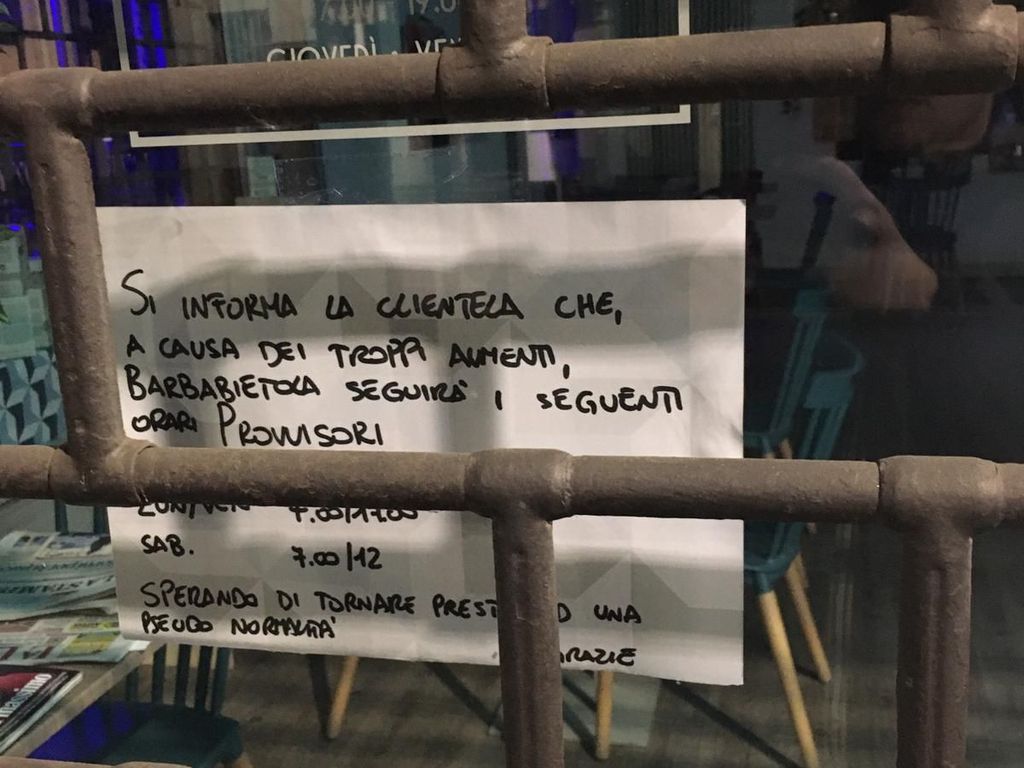 19.0
GIOVEDÌ - VEN
SI INFORMA LA CLIENTELA CHE,
A CAUSA DEI TROPPI AUMENTI,
BARBABIETOLA SEGUIRÀ I SEGUENTI
ORARI PROVVISORI
LUN/VEN 7.00/17.00
SAB. 7.00/12
SPERANDO DI TORNARE PREST D UNA
PSEUDO NORMALITÀ
GRAZIE